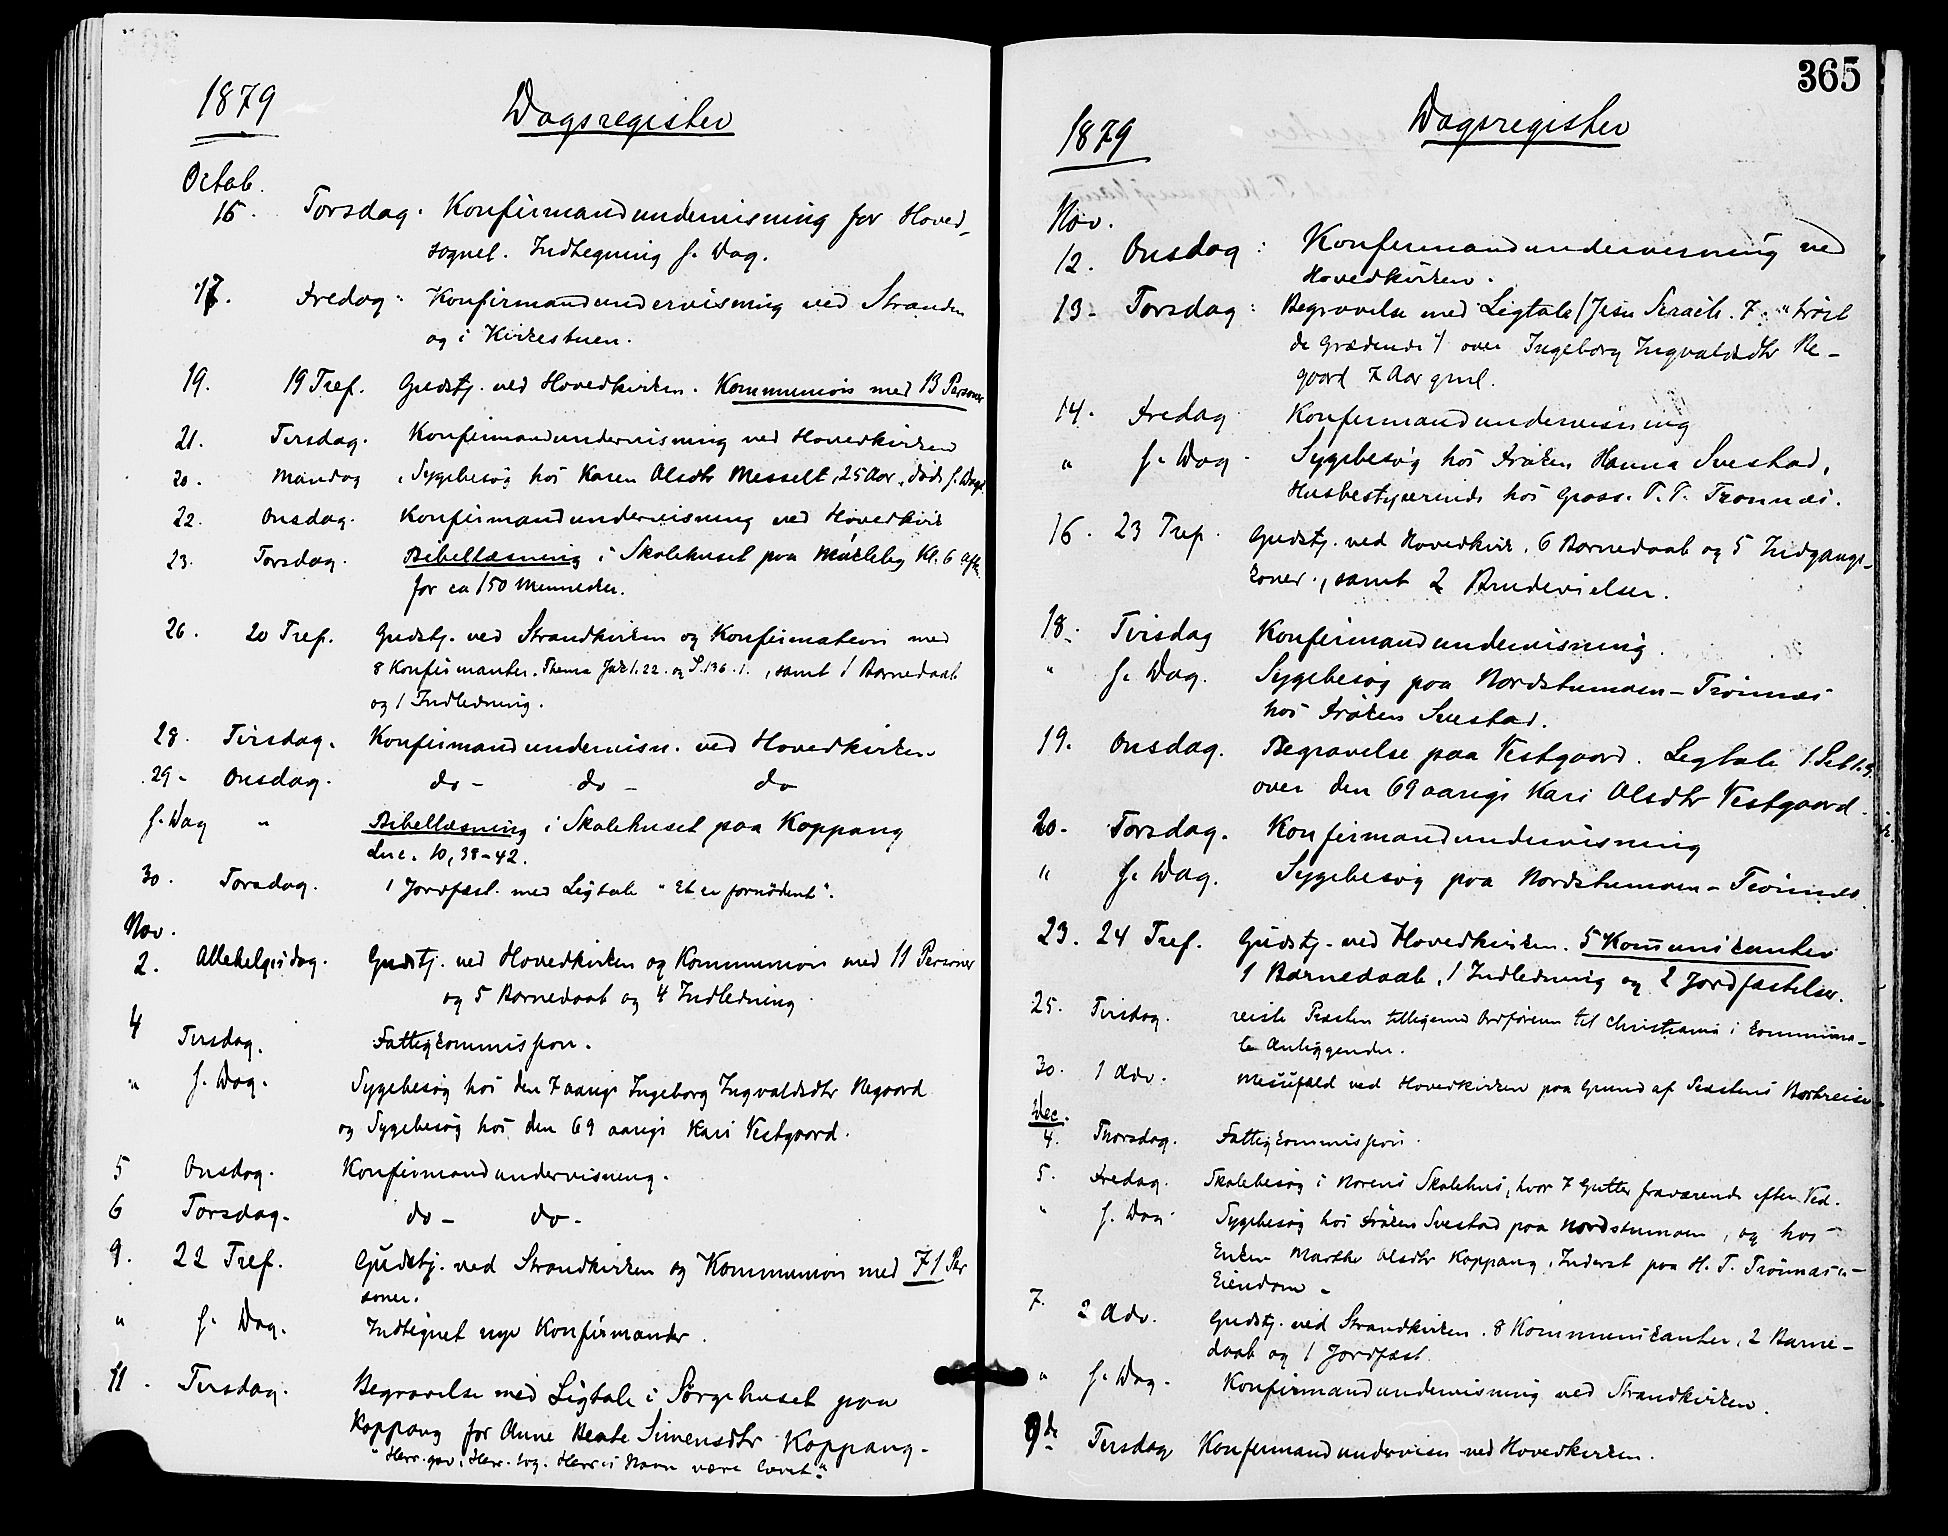 1879 Dagsregister
Octob.
16. Torsdag. Konfirmandundervisning for Hoved-
sognet. Indtegning s. Dag.
17. Fredag: Konfirmandundervisning ved Stranden
og i Kirkestuen.
19. 19 Tref. Gudstj. ved Hovedkirken. Kommunion med 13 Personer
21. Tirsdag. Konfirmandundervisning ved Hovedkirken
20. Mandag. Sygebesøg hos Karen Olsdtr Messelt, 25 Aar, død s. Dag.
22. Onsdag. Konfirmandundervisning ved Hovedkirk
23. Torsdag. Bibellæsning i Skolehuset paa Mykleby Kl. 6 Aft.
for ca 150 Mennesker.
26. 20 Tref. Gudstj. ved Strandkirken og Konfirmation med
8 Konfirmanter. Thema Jak 1.22. og S. 136.1., samt 1 Barnedaab
og 1 Indledning.
28. Tirsdag. Konfirmandundervisn. ved Hovedkirken
29- Onsdag. do - do - do
s. Dag " Bibellæsning i Skolehuset paa Koppang
Luc. 10, 38-42.
30. Torsdag. 1 Jordfæst. med Ligtale "Et er fornødent".
Nov.
2. Allehelgisdag. Gudstj. ved Hovedkirken og Kommunion med 11 Personer
og 5 Barnedaab og 4 Indledning.
4 Tirsdag. Fattigkommission.
" s. Dag. Sygebesøg hos den 7 aarige Ingeborg Ingvaldsdtr Negaard
og Sygebesøg hos den 69 aarige Kari Vestgaard.
5 Onsdag. Konfirmandundervisning.
6 Torsdag. do - do -
9. 22 Tref. Gudstj. ved Strandkirken og Kommunion med 71 Per
soner.
" s. Dag. Indtegnet nye Konfirmander.
11. Tirsdag. Begravelse med Ligtale i Sørgehuset paa
Koppang for Anne Beate Simensdtr Koppang.
"Herr. gav, Herr. tog. Herrens Navn være lovet."
365
1879 Dagsregister
Nov.
12. Onsdag: Konfirmandundervisning ved
Hovedkirken.
13- Torsdag: Begravelse med Ligtale (Jesu Sirach. 7: "trøst
de Grædende") over Ingeborg Ingvaldsdtr Ne-
gaard 7 Aar gml.
14. Fredag Konfirmandundervisning
" s. Dag. Sygebesøg hos Frøken Hanna Svestad,
Husbestyrerinde hos Gross. T. T. Trønnæs.
16. 23 Tref. Gudstj. ved Hovedkirk. 6 Barnedaab og 5 Indgangs-
koner, samt 2 Brudevielser.
18. Tirsdag Konfirmandundervisning.
" s. Dag. Sygebesøg paa Nordstumoen-Trønnæs
hos Frøken Svestad.
19. Onsdag. Begravelse paa Vestgaard. Ligtale 1. Pet 1.3.
over den 69 aarige Kari Olsdtr Vestgaard.
20. Torsdag. Konfirmandundervisning
" s. Dag. Sygebesøg paa Nordstumoen-Trønnes.
23. 24 Tref. Gudstj. ved Hovedkirken. 5 Kommunikanter
1 Barnedaab, 1 Indledning og 2 Jordfæstelser.
25. Tirsdag. reiste Præsten tilligemed Ordføreren til Christiania i kommuna-
le Anliggender.
30. 1 Adv. Messefald ved Hovedkirken paa Grund af Præstens Bortreise.
Dec.
4. Thorsdag. Fattigkommission.
5. Fredag. Skolebesøg i Morens Skolehus, hvor 7 Gutter fraværende efter Ved.
" s. Dag Sygebesøg hos Frøken Svestad paa Nordstumoen, og hos
Enken Marthe Olsdtr Koppang, Inderst paa H. T. Trønnæs's
Eiendom.
7. 2 Adv. Gudstj. ved Strandkirken. 8 Kommunikanter, 2 Barne-
daab og 1 Jordfæst.
" s. Dag. Konfirmandundervisning ved Strandkirken.
9de Tirsdag Konfirmandundervisn ved Hovedkirken.